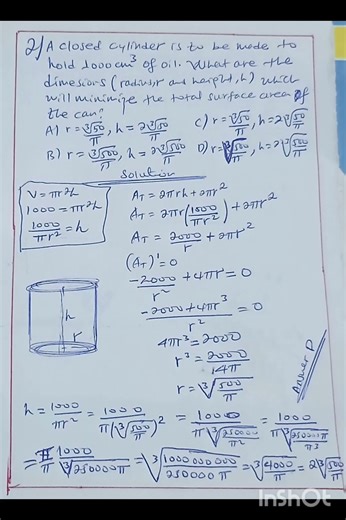 2) A closed cylinder is to be made to
hold 1000cm³ of oil. What are the
dimesions (radius,r and height,h) which
will minimize the total surface area of
the can?
A) r = ∛50/π, h = 2∛50/π C) r = ∛50/π, h = 2∛50/π
B) r = ∛500/π, h = 2∛500/π D) r = ∛500/π, h = 2∛500/π
Solution
V = πr²h
1000 = πr²h
1000/πr² = h
A_T = 2πrh + 2πr²
A_T = 2πr(1000/πr²) + 2πr²
A_T = 2000/r + 2πr²
(A_T)' = 0
-2000/r² + 4πr = 0
-2000 + 4πr³/r² = 0
4πr³ = 2000
r³ = 2000/4π
r = ∛500/π
h
r
Answer D
h = 1000/πr² = 1000/π(∛500/π)² = 1000/π∛250000/π² = 1000/π∛250000π/π³
= π/π 1000/∛250000π = ∛1000 000 000/250000π = ∛4000/π = 2∛500/π
InShot